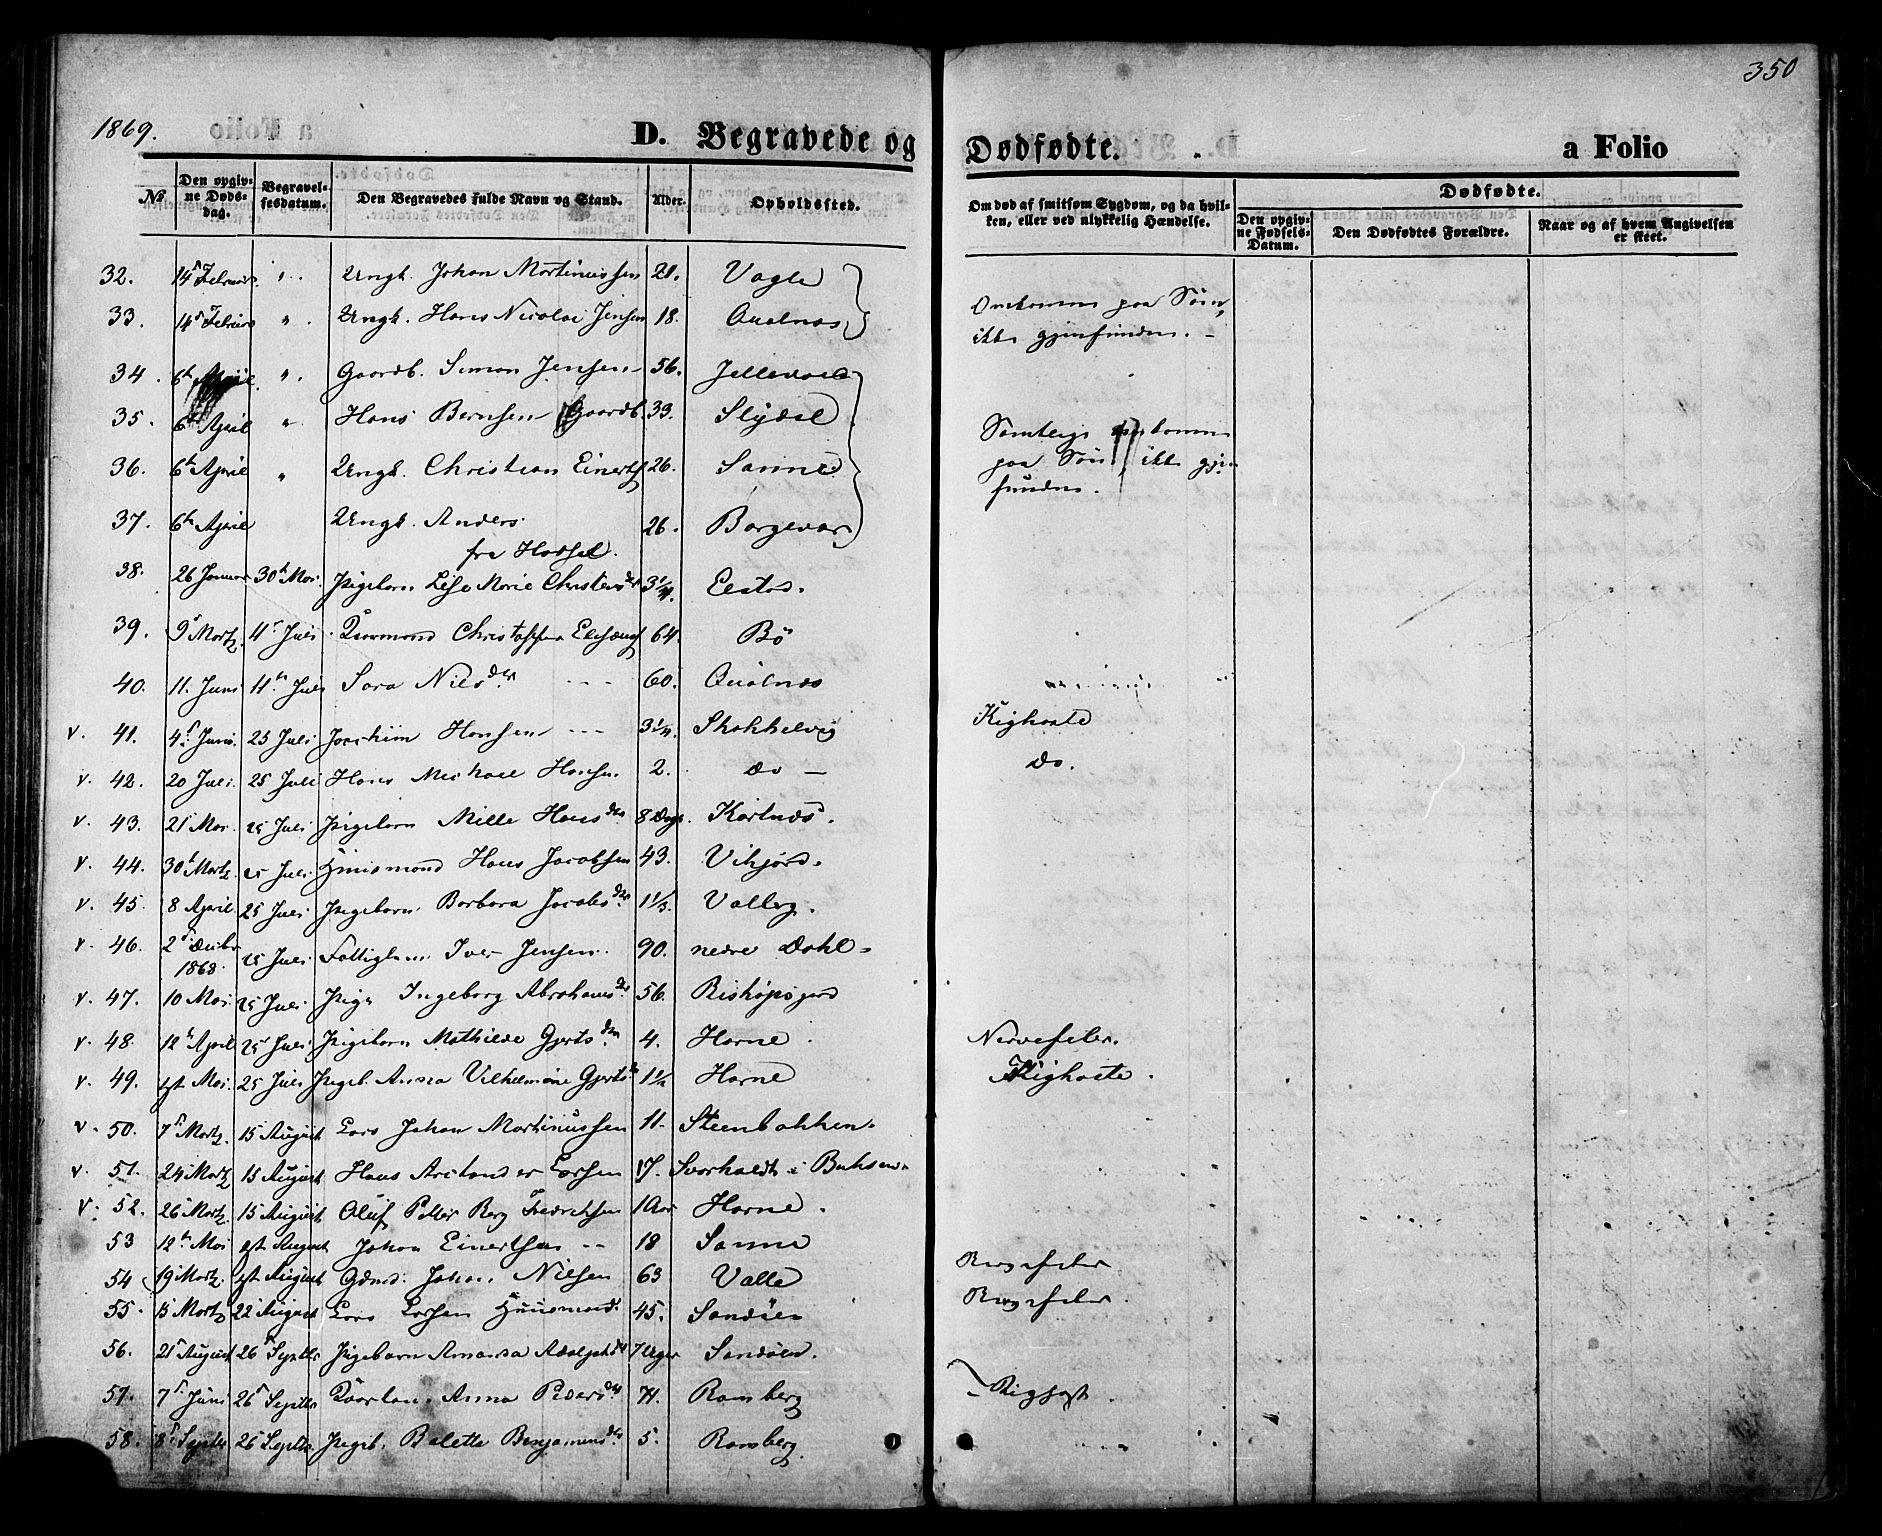 350
1869.
D. Begravede og Dødfødte.
a Folio
№
Den opgivne Dødsdag.
Begravelsesdatum.
Den Begravedes fulde Navn og Stand.
Alder.
Opholdssted.
Om død af smitsom Sygdom, og da hvilken, eller ved ulykkelig Hændelse.
Dødfødte.
Den opgivne Fødsels-Datum.
Den Dødfødtes Forældre.
Naar og af hvem Angivelsen er skeet.
32. 14d Februar " Ungk. Johan Martinussen 21. Vagle
33. 14d Februar " Ungk. Hans Nicolai Jensen 18. Qualnæs
Omkomne paa Søen, ikke gjenfunden. -
34. 6te April " Gaardb. Simon Jensen 56. Jellevold
35. 6te April " Hans Bernsen Gaardb. 33. Slydal
36. 6te April " Ungk. Christian Einerts 26. Sanne
37. 6te April Ungk. Anders fra Hadsel. 26. Borgevær
Samtlige omkomne paa Søen, ikke gjenfunden.
38. 26 Januar 30te Mai Pigebarn Lise Marie Christensdtr 3 1/4. Eestad.
39. 9d Martz. 11te Juli Kaarmand Christopher Elisæus 64. Bö
40. 11. Juni 11te Juli Sara Nilsdtr. 60. Qualnæs
v. 41. 4d Juni. 25 Juli Joachim Hansen 3 1/4. Skokkelvig Kighoste
v. 42. 20 Juli. 25 Juli Hans Michael Hansen 2. do - do.
v. 43. 21d Mai. 25 Juli Pigebarn Mille Hansdtr 8 Dage. Kartnæs.
v. 44. 30te Martz. 25 Juli Huusmand Hans Jacobsen 43. Vikjord.
v. 45. 8 April 25 Juli Pigebarn Barbara Jacobsdtr. 1 1/3. Valberg.
v. 46. 2d Decbr 1868. 25 Juli Fattiglem Iver Jensen. 90. nedre Dahl.
v. 47. 10 Mai. 25 Juli Pige Ingeborg Abrahamsdtr. 56. Biskopsgjerd
v. 48. 12te April 25 Juli Pigebarn Mathilde Gjertsdtr. 4. Horne Nervefeber.
v. 49. 1st Mai. 25 Juli Pigeb. Anna Vilhelmine Gjertsdtr 1 1/2 Horne Kighoste.
v. 50. 7d Martz. 15 August Lars Johan Martinussen 11. Steenbakken.
v. 51. 24 Martz 15 August Hans Larsen 17. Svarholdt i Buksnes
v. 52. 26 Martz. 15 August Oluf Petter Berg Fredriksen 1 Aar Horne.
53 12te Mai 1st August Johan Einertsen 18 Sanne
54 19 Martz. 1st August Gdmd. Johan Nilsen 63 Valle
55. 15 Martz 22 August Lars Larsen Huusmand. 45. Sandöen
56. 21d August 26d Septbr Pigebarn Amanda Adolphsdtr 7 Uger Sandöen.
57. 7d Juni 26d Septbr Anna Pedersdtr 74. Ramberg
58. 8d Septbr 26 Septbr. Pigeb. Balette Benjaminsdtr 5. Ramberg.